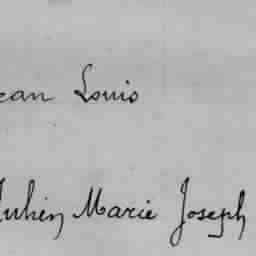 ean Louis
Julien Marie Joseph